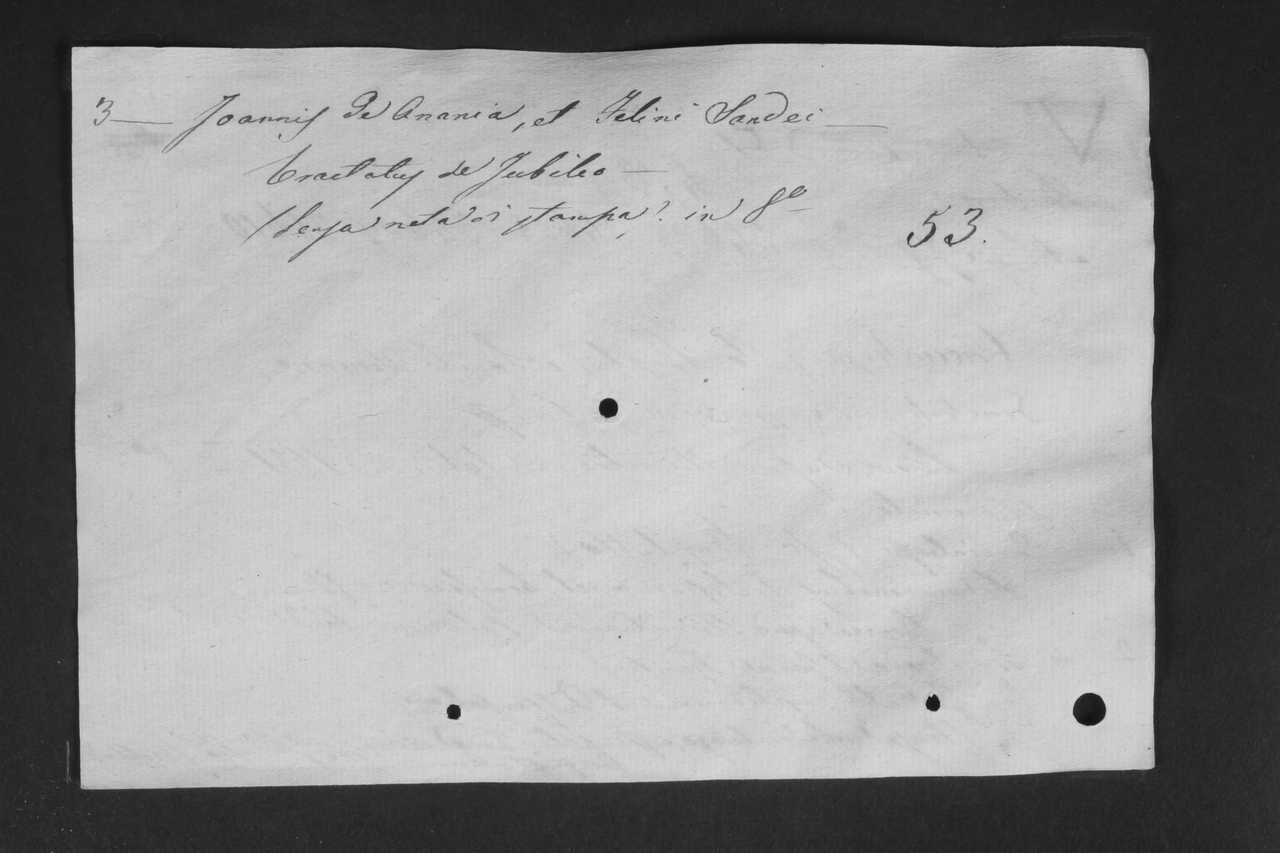 3 — Joannis de Anania, et Felini Sandei —
Tractatus de Jubileo —
(senza nota di stampa) in 8º
53.